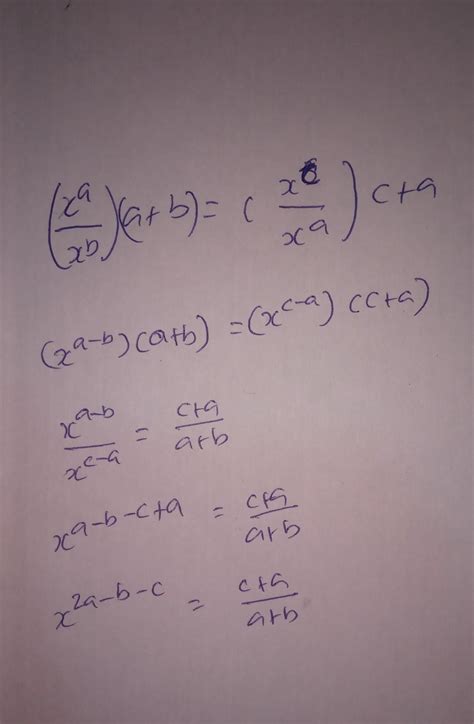 (x^a/x^b)(a+b) = (x^c/x^a) c+a
(x^{a-b})(a+b) = (x^{c-a}) (c+a)
x^{a-b}/x^{c-a} = c+a/a+b
x^{a-b-c+a} = c+a/a+b
x^{2a-b-c} = c+a/a+b